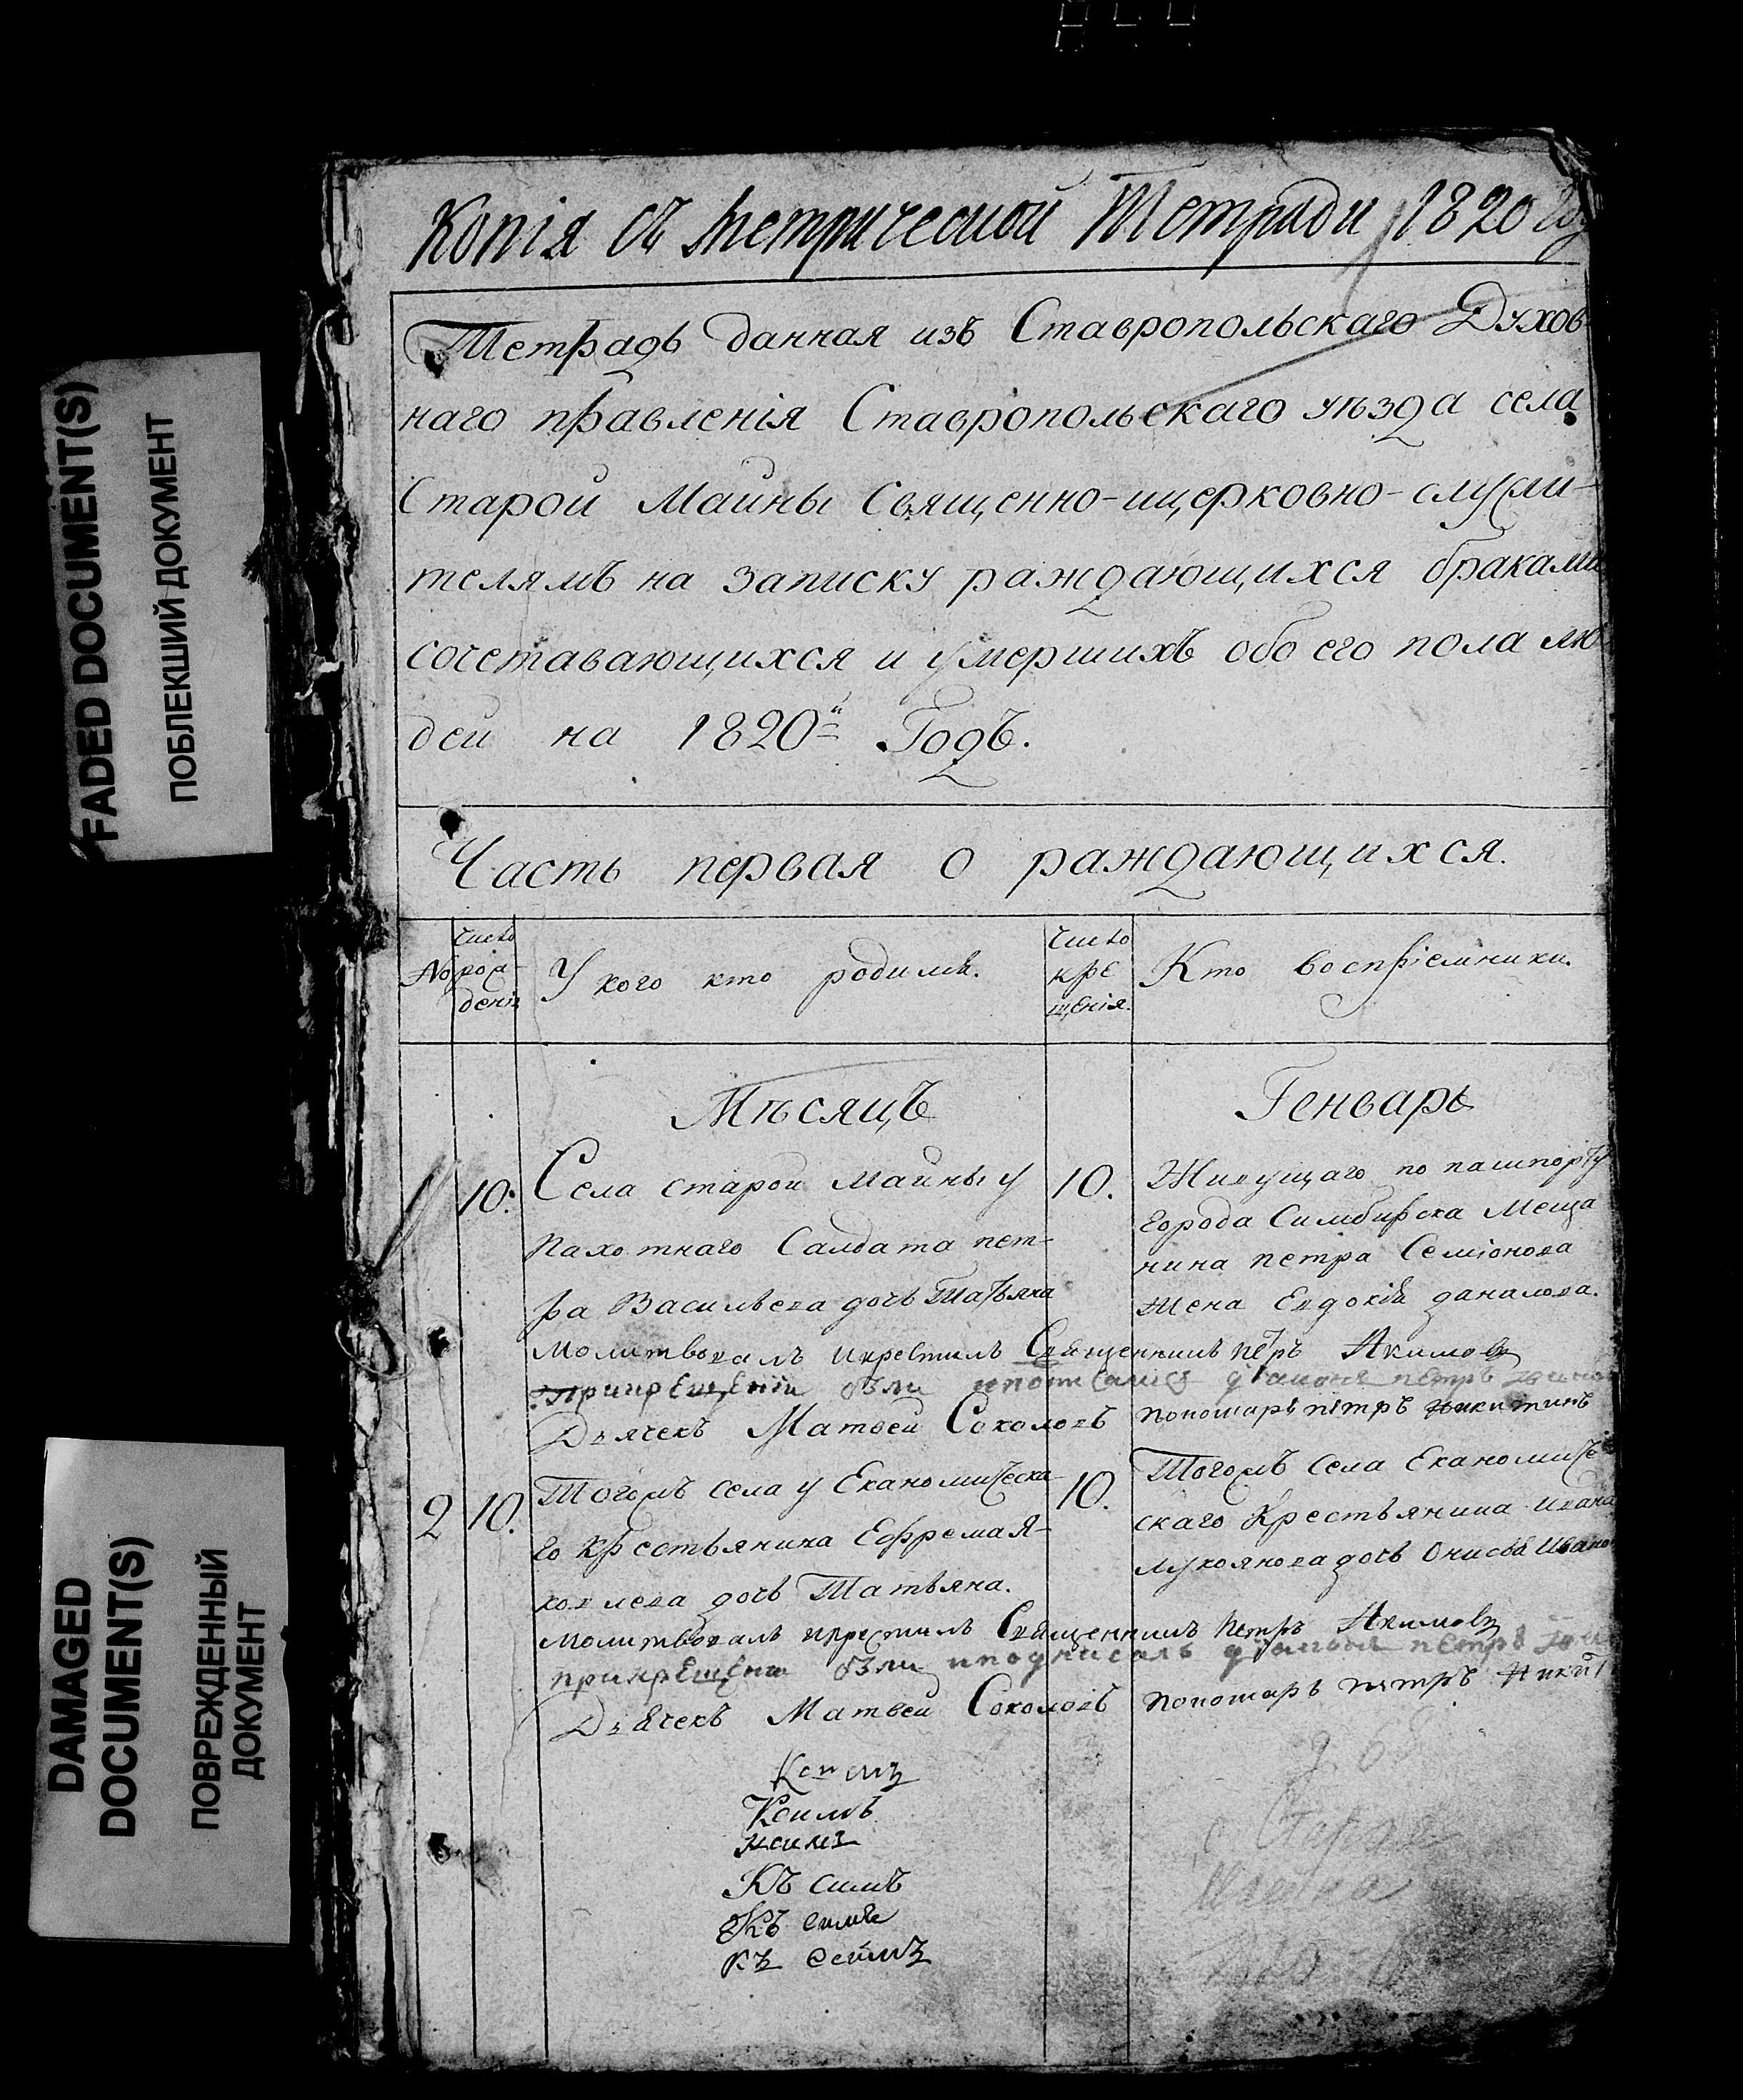 FADED DOCUMENT(S)
ПОБЛЕКШИЙ ДОКУМЕНТ
DAMAGED
DOCUMENT(S)
ПОВРЕЖДЕННЫЙ
ДОКУМЕНТ
Копія съ метрической Тетради 1820 году
Тетрадь данная изъ Ставропольскаго Духов-
наго правленія Ставропольскаго уѣзда села
Старой Майны Священно-ицерковно-служи-
телямъ на записку раждающихся браками
сочетавающихся и умершихъ обоего пола лю
дей на 1820й Годъ.
Часть первая о раждающихся.
№
число рож-
денія
У кого кто родился.
число
кре
щенія.
Кто воспріемники.
Мѣсяцъ Генварь
1 10. Села старой Майны у
пахотнаго Салдата пет-
ра Васильева дочь Татьяна
10. Живущаго по пашпорту
города Симбирска Меща
нина петра Семіонова
жена Евдокія данилова.
Молитвовалъ икрестилъ Священникъ петръ Акимовъ
прикрещеніи были
Дьячекъ Матвей Соколовъ пономарь петръ Никитинъ
2 10. Тогожъ села у Еканомическа-
го крестьянина Ефрема Я-
ковлева дочь Татьяна.
10. Тогожъ села Еканомиче
скаго Крестьянина ивана
Лукоянова дочь Онисья Ивано
Молитвовалъ икрестилъ Священникъ петръ Акимовъ
прикрещеніи были иподписалъ діаконъ петръ
Дьячекъ Матвей Соколовъ пономарь петръ Никит
Къ симъ
Къ симъ
Старая
Майна